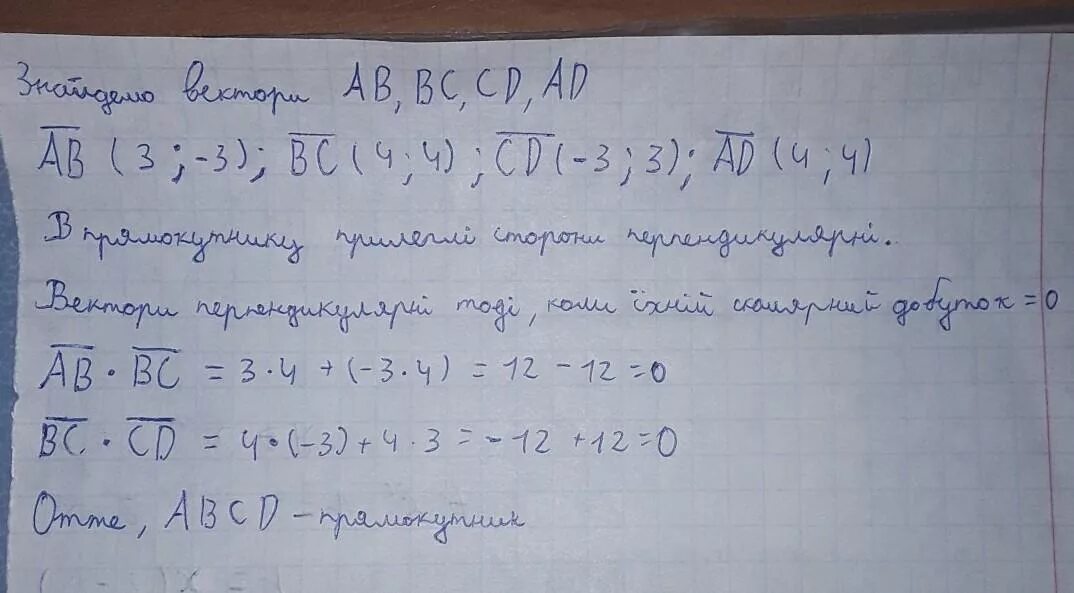 Знайдемо вектори AB, BC, CD, AD
AB (3 ; -3); BC (4 ; 4) ; CD (-3 ; 3); AD (4 ; 4)
В прямокутнику прилеглі сторони перпендикулярні.
Вектори перпендикулярні тоді, коли їхній скалярний добуток = 0
AB · BC = 3·4 + (-3·4) = 12 - 12 = 0
BC · CD = 4·(-3) + 4·3 = -12 + 12 = 0
Отже, ABCD - прямокутник